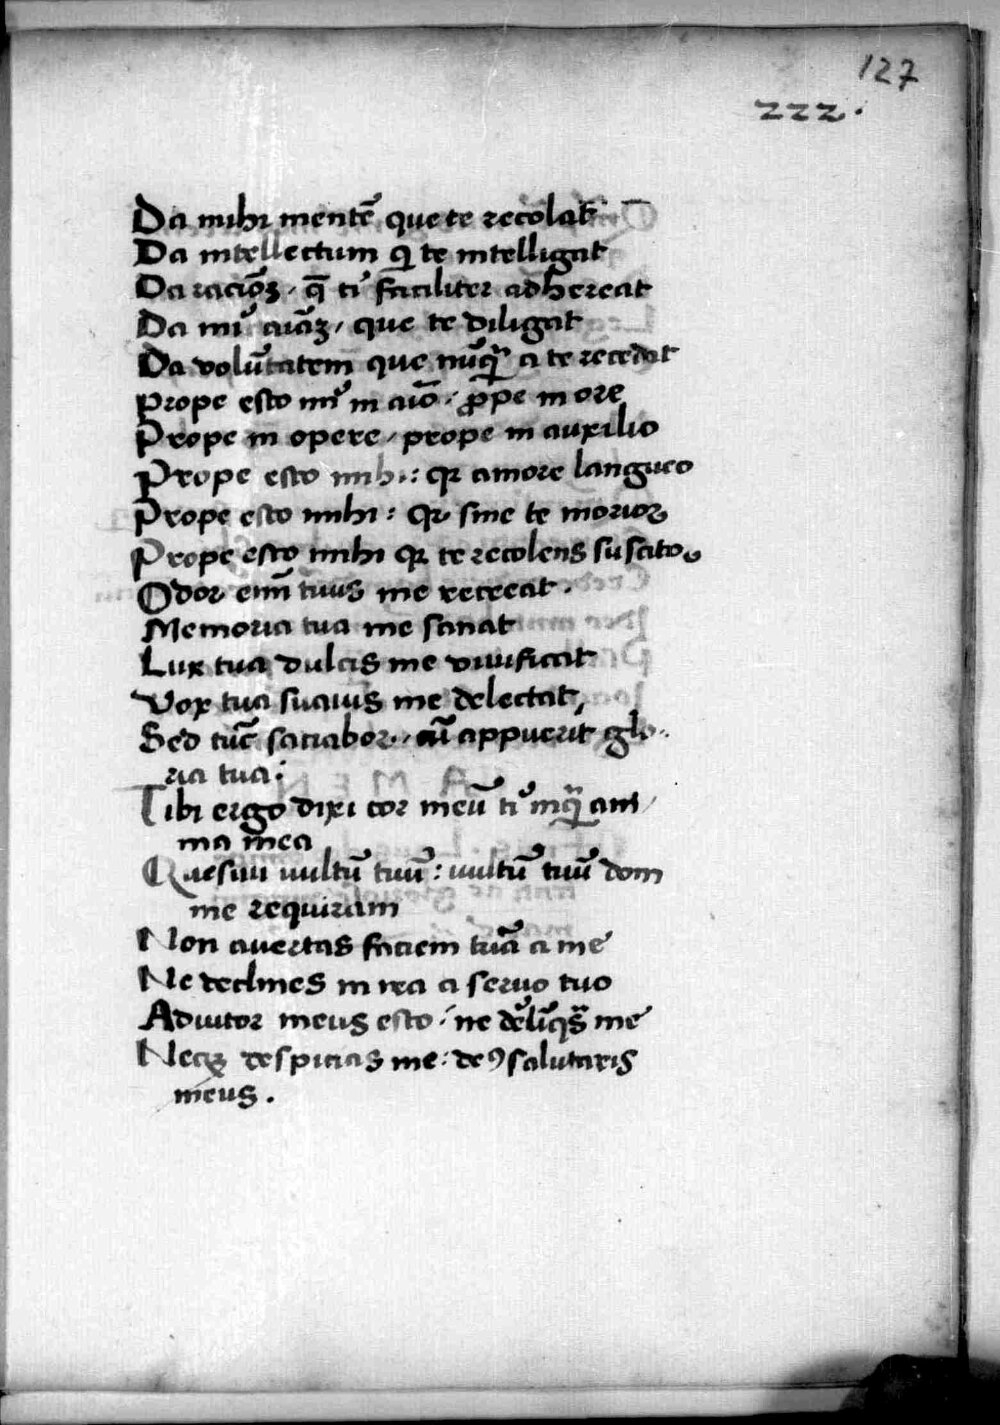 127
222.
Da mihi mentē que te recolat
Da intellectum qi te intelligat
Da racioēꝫ, q̄ ti faciliter adhereat
Da mi aīaꝫ, que te diligat
Da volūtatem que nūqꝫ a te recedat
Prope esto mi in aīo, ꝓpe in ore
Prope in opere, prope in auxilio
Prope esto mihi: qꝛ amore langueo
Prope esto mihi: qꝛ sine te morior
Prope esto mihi qꝛ te recolens suscitoꝛ
Odor enī tuus me recreat.
Memoria tua me sanat
Lux tua dulcis me viuificat
Vox tua suauis me delectat,
Sed tūc saciabor, cū appuerit glo-
ria tua:
Tibi ergo dixi cor meū ti inqͣ ani/
ma mea
Quesiui uultū tuū: uultū tuū dom
ine requiram
Non auertas faciem tuā a me
Ne declines in ira a seruo tuo
Adiutor meus esto: ne dēlīqͣs me
Neqꝫ despicias me: deꝰ salutaris
meus.